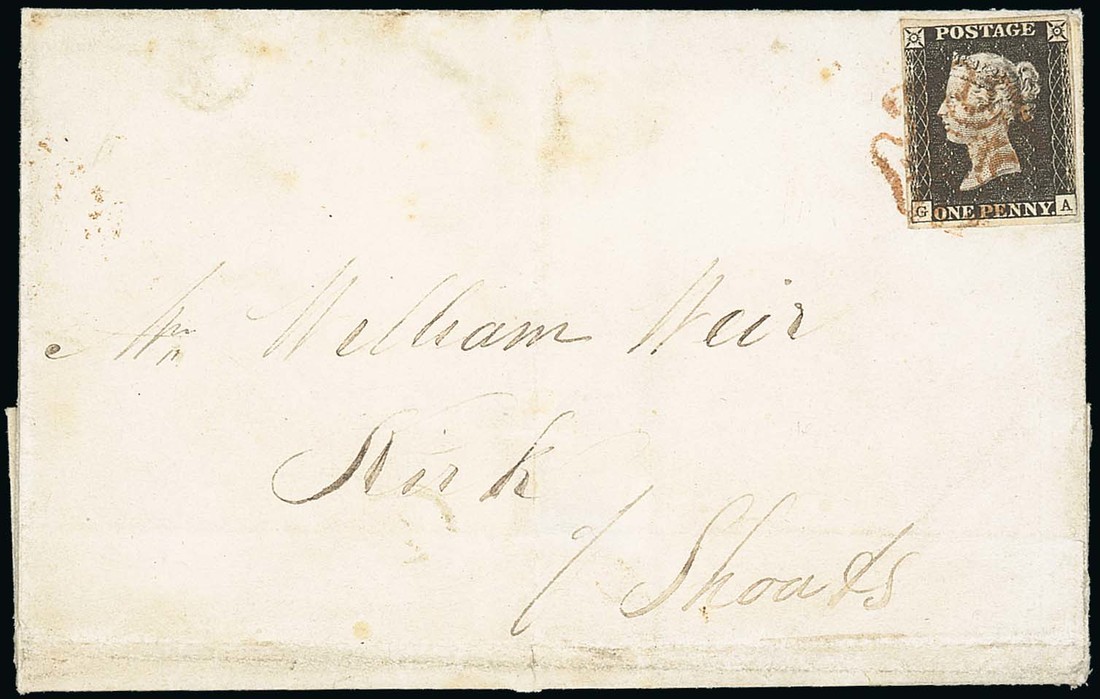 POSTAGE
G ONE PENNY. A
Mr William Weir
Kirk
/ Shoats